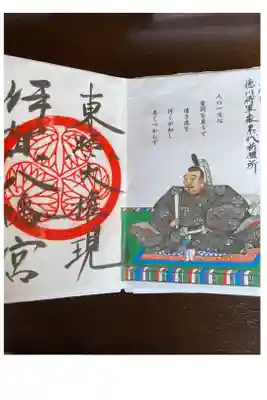 徳川将軍家累代祈願所
人の一生は
重荷を負うて
遠き道を
行くが如し
急ぐべからず
東照大権現
伊賀八幡宮